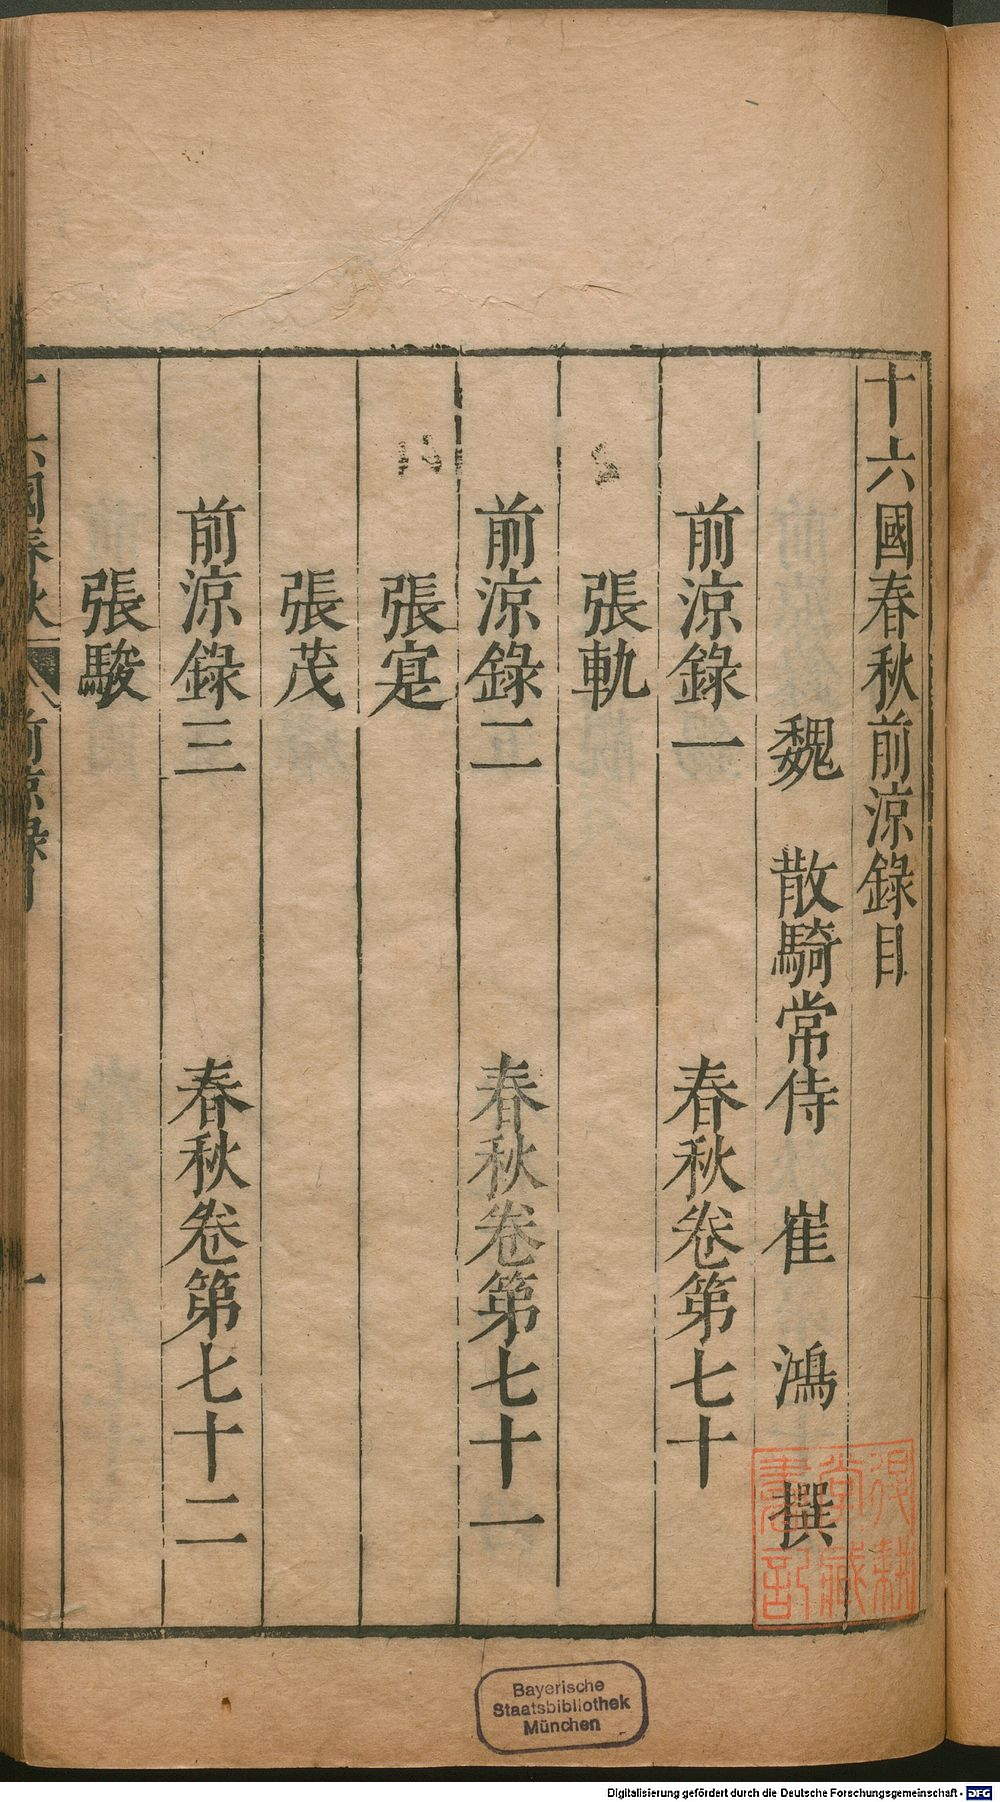 十六國春秋前涼錄目
魏 散騎常侍 崔 鴻 撰
前涼錄一 春秋卷第七十
張軌
前涼錄二 春秋卷第七十一
張寔
張茂
前涼錄三 春秋卷第七十二
張駿
十六國春秋 前涼錄目 一
Bayerische
Staatsbibliothek
München
Digitalisierung gefördert durch die Deutsche Forschungsgemeinschaft - DFG